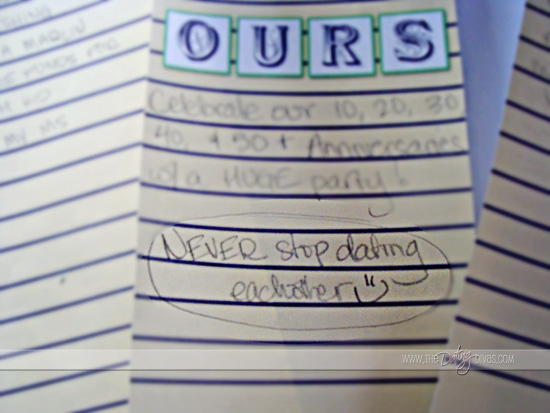 OURS
Celebrate our 10, 20, 30
40, + 50+ Anniversaries
w/ a HUGE party!
NEVER stop dating
eachother
THING
A MAQUIN
MY MS
WWW.THE Dating DIVAS.COM